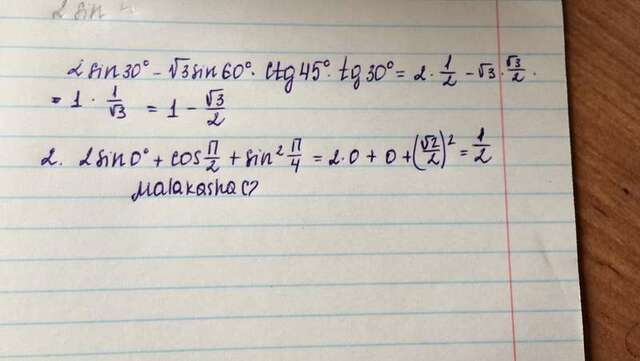 2 sin
2sin30° - √3sin60° · ctg45° · tg30° = 2 · 1/2 - √3 · √3/2 ·
= 1 · 1/√3 = 1 - √3/2
2. 2sin0° + cos π/2 + sin² π/4 = 2·0 + 0 + (√2/2)² = 1/2
Malakasha